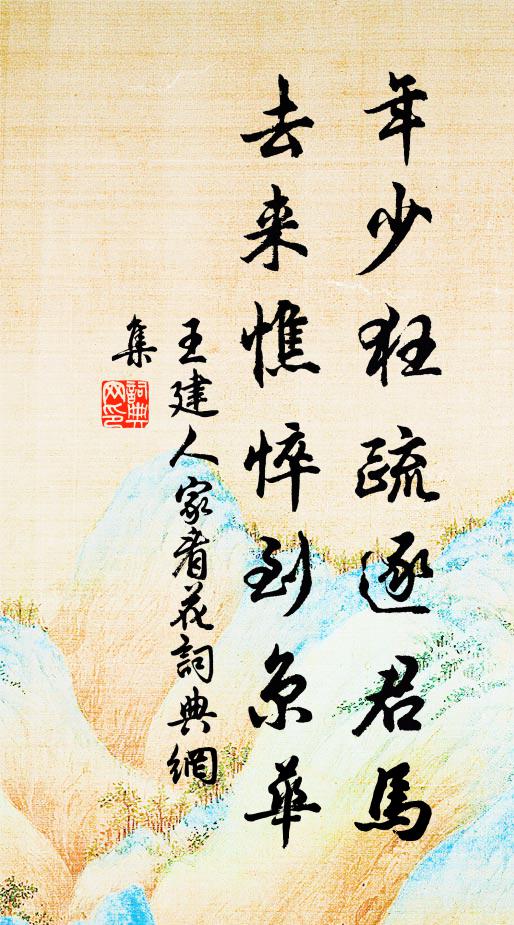 年少狂疏逐君馬
去来憔悴到京華
王建人家看花詞典網
集
詞典
网印